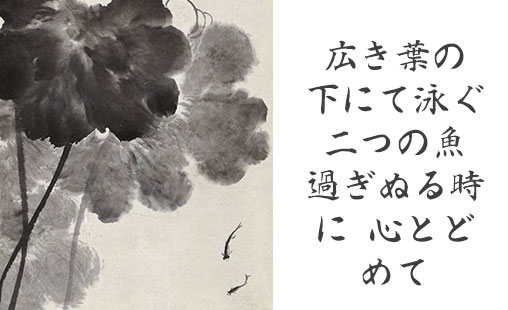 広き葉の
下にて泳ぐ
二つの魚
過ぎぬる時
に 心とど
めて